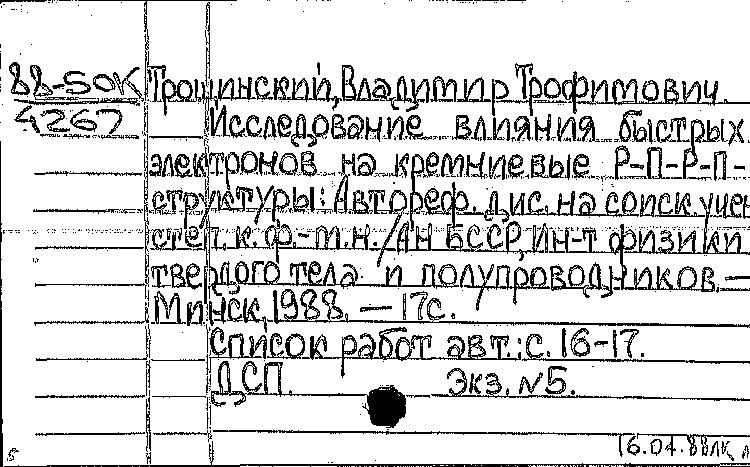 88-50К Трошинский, Владимир Трофимович.
4267 Исследование влияния быстрых
электронов на кремниевые Р-П-Р-П-
структуры: Автореф. дис. на соиск. учен
степ. к. ф.-т.н. / АН БССР, Ин-т физики
твердого тела и полупроводников. —
Минск, 1988. — 17с.
Список работ авт.: с. 16-17.
ДСП. Экз. №5.
16.04.88